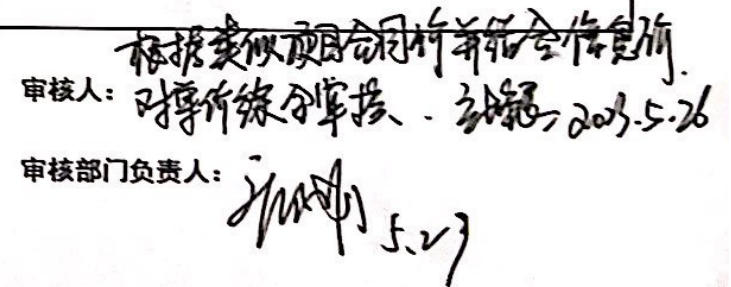 根据类似项目合同价并结合信息价
审核人：对单价综合掌握、. 2023.5.26
审核部门负责人：5.27